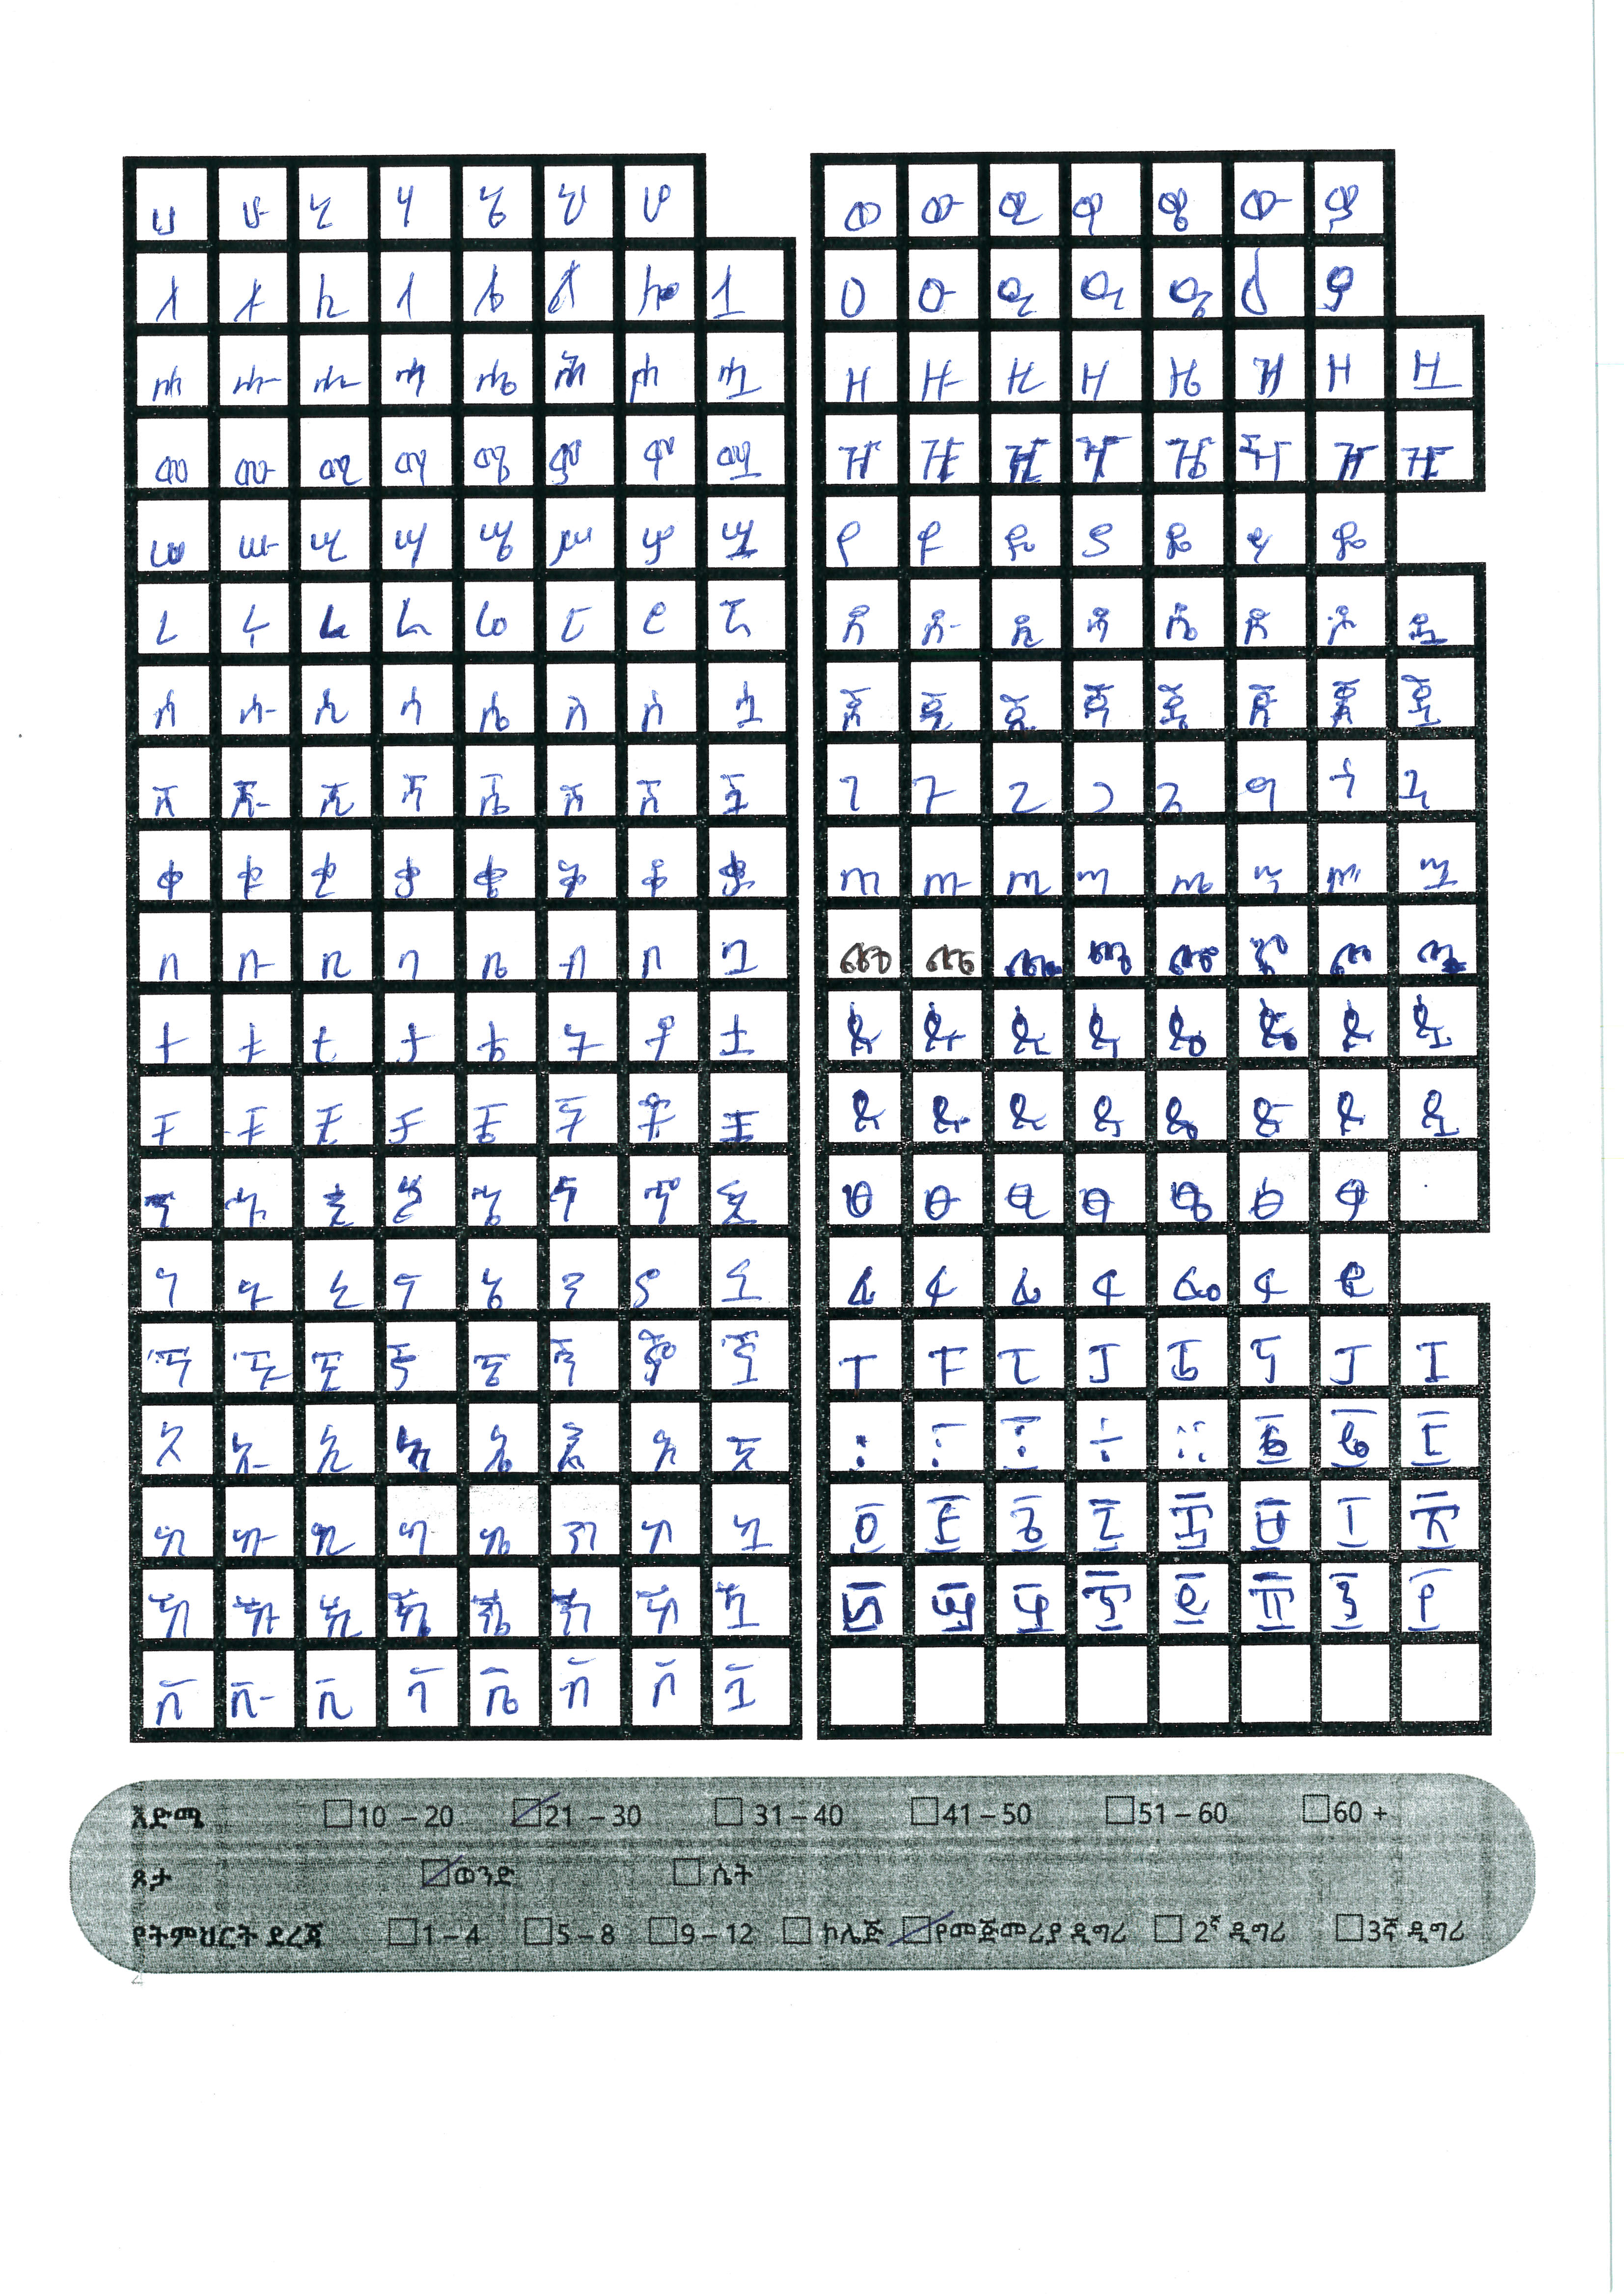 ሀ ሁ ሂ ሃ ሄ ህ ሆ
ለ ሉ ሊ ላ ሌ ል ሎ ሏ
ሐ ሑ ሒ ሓ ሔ ሕ ሖ ሗ
መ ሙ ሚ ማ ሜ ም ሞ ሟ
ሠ ሡ ሢ ሣ ሤ ሥ ሦ ሧ
ረ ሩ ሪ ራ ሬ ር ሮ ሯ
ሰ ሱ ሲ ሳ ሴ ስ ሶ ሷ
ሸ ሹ ሺ ሻ ሼ ሽ ሾ ሿ
ቀ ቁ ቂ ቃ ቄ ቅ ቆ ቋ
በ ቡ ቢ ባ ቤ ብ ቦ ቧ
ተ ቱ ቲ ታ ቴ ት ቶ ቷ
ቸ ቹ ቺ ቻ ቼ ች ቾ ቿ
ኀ ኁ ኂ ኃ ኄ ኅ ኆ ኋ
ነ ኑ ኒ ና ኔ ን ኖ ኗ
ኘ ኙ ኚ ኛ ኜ ኝ ኞ ኟ
አ ኡ ኢ ኣ ኤ እ ኦ ኧ
ከ ኩ ኪ ካ ኬ ክ ኮ ኳ
ኸ ኹ ኺ ኻ ኼ ኽ ኾ ዃ
ቨ ቩ ቪ ቫ ቬ ቭ ቮ ቯ
ወ ዉ ዊ ዋ ዌ ው ዎ
ዐ ዑ ዒ ዓ ዔ ዕ ዖ
ዘ ዙ ዚ ዛ ዜ ዝ ዞ ዟ
ዠ ዡ ዢ ዣ ዤ ዥ ዦ ዧ
የ ዩ ዪ ያ ዬ ይ ዮ
ደ ዱ ዲ ዳ ዴ ድ ዶ ዷ
ጀ ጁ ጂ ጃ ጄ ጅ ጆ ጇ
ገ ጉ ጊ ጋ ጌ ግ ጎ ጓ
ጠ ጡ ጢ ጣ ጤ ጥ ጦ ጧ
ጨ ጩ ጪ ጫ ጬ ጭ ጮ ጯ
ጰ ጱ ጲ ጳ ጴ ጵ ጶ ጷ
ጸ ጹ ጺ ጻ ጼ ጽ ጾ ጿ
ፀ ፁ ፂ ፃ ፄ ፅ ፆ
ፈ ፉ ፊ ፋ ፌ ፍ ፎ
ፐ ፑ ፒ ፓ ፔ ፕ ፖ ፗ
፡ ፣ ፤ ÷ ። ፩ ፪ ፫
፬ ፭ ፮ ፯ ፰ ፱ ፲ ፳
፴ ፵ ፶ ፷ ፸ ፹ ፺ ፻
እድሜ 10 – 20 21 – 30 31 – 40 41 – 50 51 – 60 60 +
ጾታ ወንድ ሴት
የትምህርት ደረጃ 1 – 4 5 – 8 9 – 12 ኮሌጅ የመጀመሪያ ዲግሪ 2ኛ ዲግሪ 3ኛ ዲግሪ